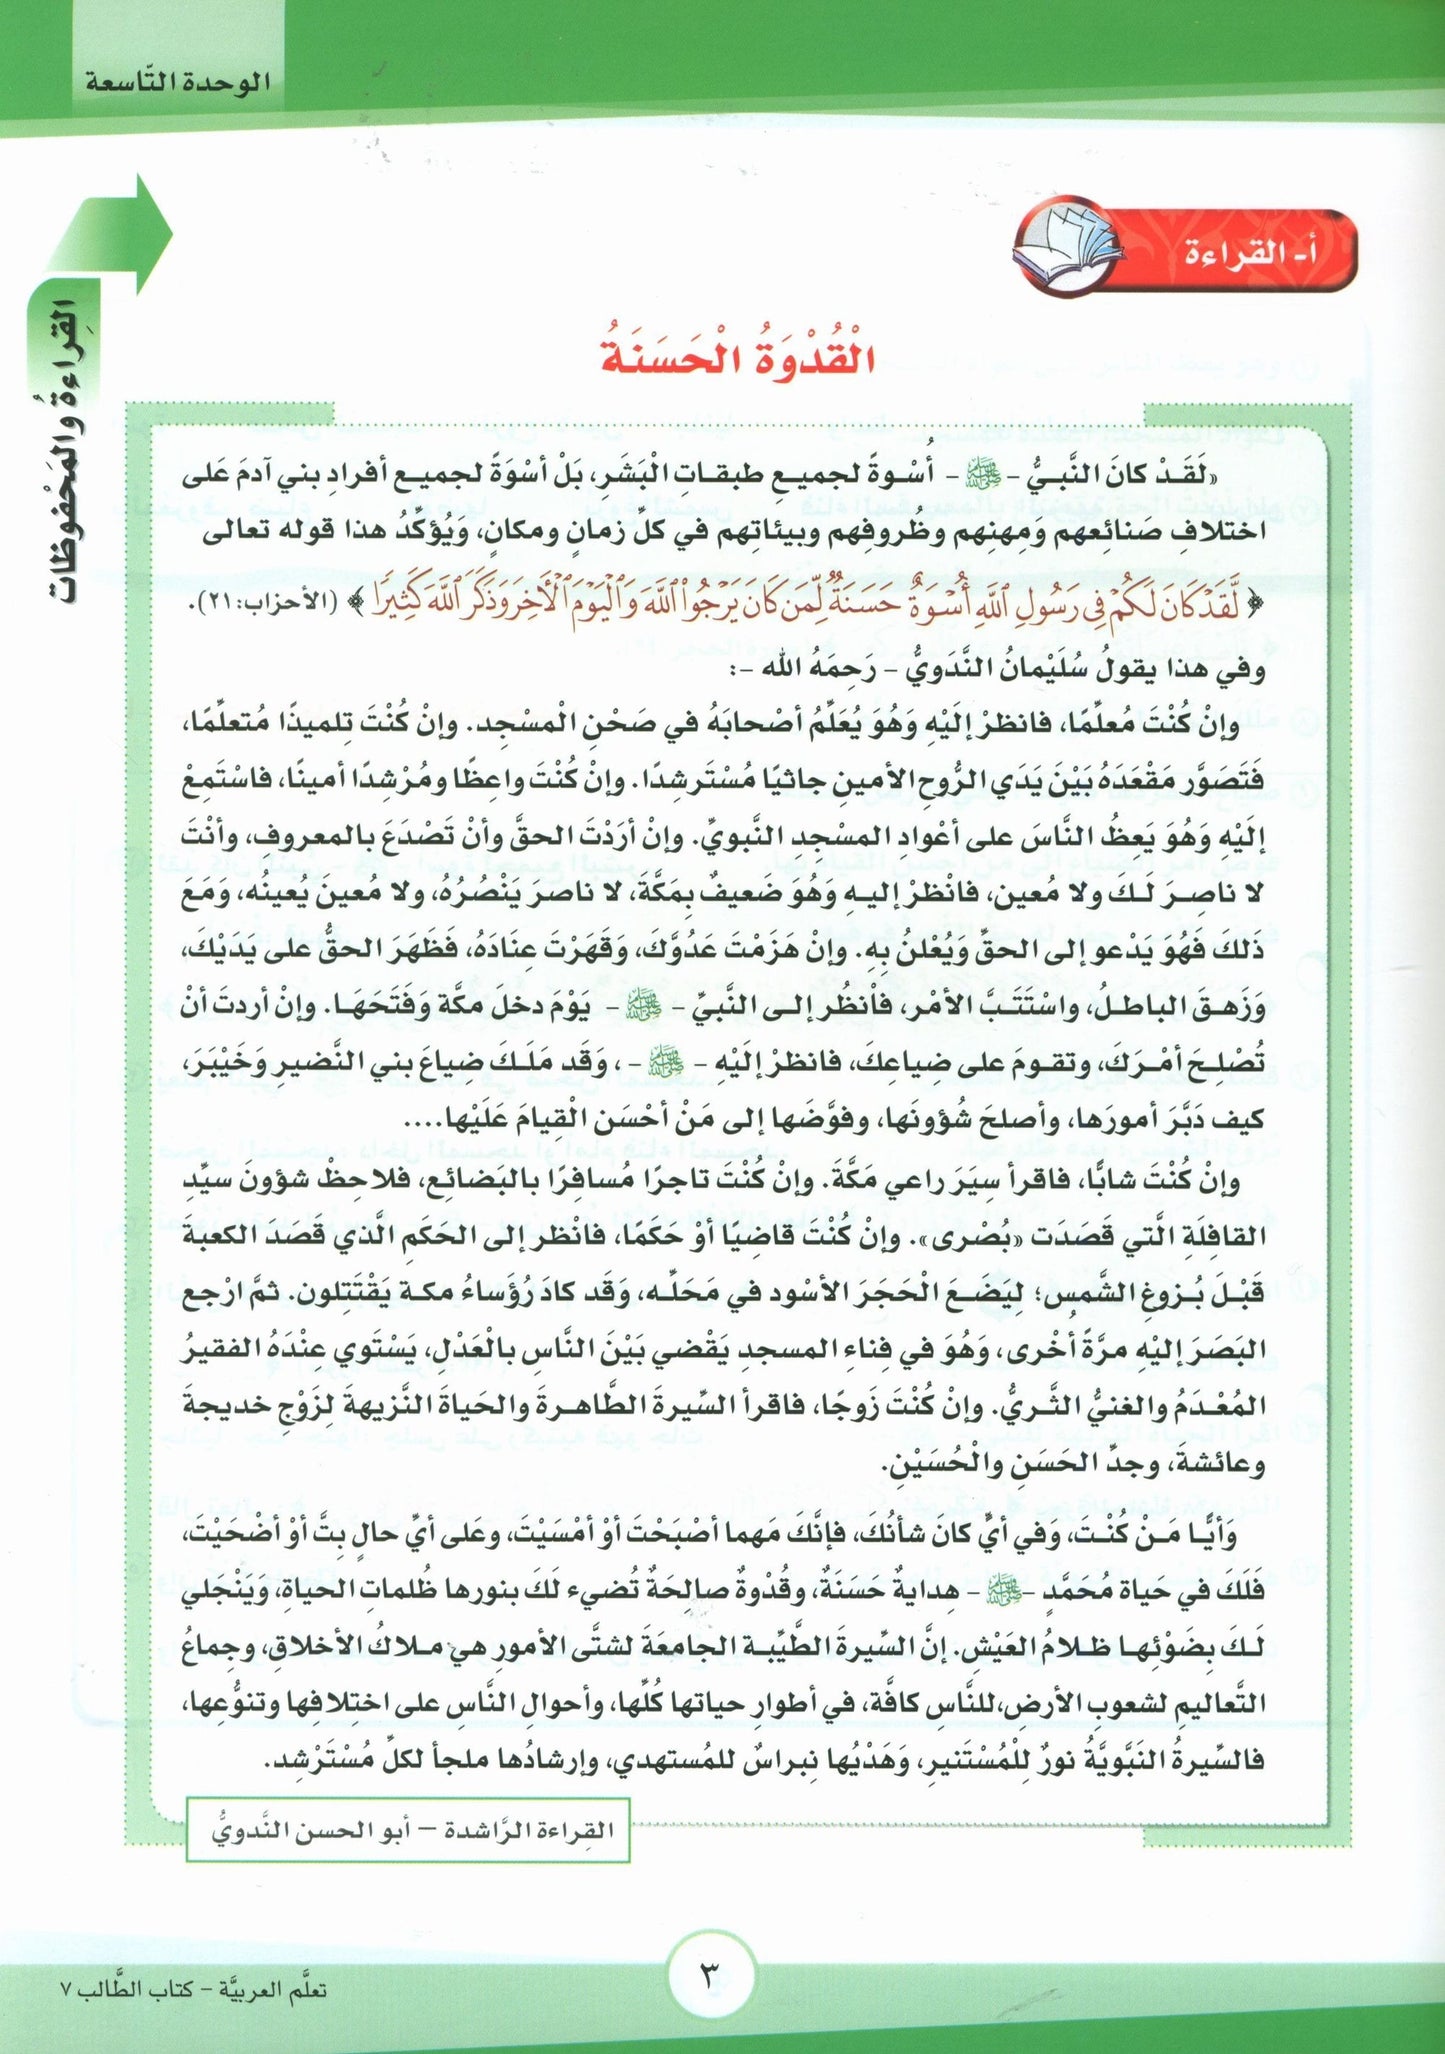 الوحدة التّاسعة
أ- القراءة
القِراءةُ والمَحْفوظات
الْقُدْوَةُ الْحَسَنَةُ
«لَقَدْ كانَ النَّبيُّ - ﷺ - أُسْوةً لجميعِ طبقاتِ الْبَشَرِ، بَلْ أسْوَةً لجميعِ أفرادِ بني آدمَ عَلى
اختلافِ صَنائعِهم وَمِهنِهم وظُروفِهم وبيئاتِهم في كلِّ زمانٍ ومكانٍ، وَيُؤكّدُ هذا قوله تعالى
﴿ لَّقَدْ كَانَ لَكُمْ فِي رَسُولِ ٱللَّهِ أُسْوَةٌ حَسَنَةٌ لِّمَن كَانَ يَرْجُواْ ٱللَّهَ وَٱلْيَوْمَ ٱلْأَخِرَ وَذَكَرَ ٱللَّهَ كَثِيرًا ﴾ (الأحزاب: ٢١).
وفي هذا يقولُ سُلَيْمانُ النَّدَويُّ - رَحِمَهُ الله -:
وإنْ كُنْتَ مُعلِّمًا، فانظرْ إلَيْهِ وَهُوَ يُعَلِّمُ أصْحابَهُ في صَحْنِ الْمسْجِد. وإنْ كُنْتَ تِلميذًا مُتعلِّمًا،
فَتَصَوَّر مَقْعَدَهُ بَيْنَ يَدَي الرُّوحِ الأمينِ جاثيًا مُسْتَرشدًا. وإنْ كُنْتَ واعِظًا ومُرْشدًا أمينًا، فاسْتَمِعْ
إلَيْهِ وَهُوَ يَعظُ النَّاسَ على أعْوادِ المسْجدِ النَّبويِّ. وإنْ أرَدْتَ الحقَّ وأنْ تَصْدَعَ بالمعروفِ، وأنْتَ
لا ناصِرَ لَكَ ولا مُعين، فانْظرْ إليهِ وَهُوَ ضَعيفٌ بِمَكَّةَ، لا ناصرَ يَنْصُرُهُ، ولا مُعينَ يُعينُه، وَمَعَ
ذَلكَ فَهُوَ يَدْعو إلى الحقِّ وَيُعْلنُ بِهِ. وإنْ هَزَمْتَ عَدُوَّكَ، وَقَهَرْتَ عِنَادَهُ، فَظَهَرَ الحقُّ على يَدَيْكَ،
وَزَهقَ الباطلُ، واسْتَتَبَّ الأمْر، فَانْظُر إلى النَّبيِّ - ﷺ - يَوْمَ دخلَ مكَّة وَفَتَحَهَا. وإنْ أردتَ أنْ
تُصْلحَ أمْرَكَ، وتقومَ على ضِياعِكَ، فانظرْ إلَيْهِ - ﷺ -، وَقَد مَلَكَ ضِياعَ بني النَّضيرِ وَخَيْبَرَ،
كيف دَبَّرَ أمورَها، وأصلحَ شُؤونَها، وفوَّضَها إلى مَنْ أحْسَن الْقِيامَ عَلَيْها....
وإنْ كُنْتَ شابًّا، فاقرأ سِيَرَ راعي مَكَّةَ. وإنْ كُنْتَ تاجرًا مُسافرًا بالبَضائعِ، فلاحِظ شؤونَ سيِّدِ
القافِلَةِ الَّتي قَصَدَت «بُصْرى». وإنْ كُنْتَ قاضيًا أوْ حكمًا، فانْظر إلى الحَكَمِ الَّذي قصدَ الكعبةَ
قَبْلَ بُزوغِ الشَّمسِ؛ لِيَضَعَ الْحَجَرَ الأسْود في مَحَلِّه، وَقَد كادَ رُؤَساءُ مكة يَقْتَتِلون. ثمَّ ارْجع
البَصَرَ إليْهِ مرَّةً أُخْرى، وَهُوَ في فِناءِ المسجدِ يَقْضي بَيْنَ النَّاسِ بالْعَدْلِ، يَسْتَوي عنْدَهُ الفقيرُ
المُعْدَمُ والغنيُّ الثَّريُّ. وإنْ كُنْتَ زَوجًا، فاقرأ السِّيرةَ الطَّاهرةَ والحَياةَ النَّزيهةَ لِزَوْجِ خديجةَ
وعائشةَ، وجدِّ الحَسَنِ والْحُسَيْنِ.
وَأيًّا مَنْ كُنْتَ، وَفي أيٍّ كانَ شأنُكَ، فإنَّكَ مَهما أصْبَحْتَ أوْ أمْسَيْتَ، وعَلى أيِّ حالٍ بِتَّ أوْ أضْحَيْتَ،
فَلَكَ في حَياة مُحَمَّدٍ -ﷺ- هِدايةٌ حَسَنَةٌ، وقُدْوةٌ صالِحَةٌ تُضيء لَكَ بنورها ظُلماتِ الحياةِ، وَيَنْجَلي
لَكَ بِضَوْئِها ظلامُ العَيْشِ. إنَّ السِّيرةَ الطَّيِّبةَ الجامعَةَ لشتَّى الأمورِ هي مِلاكُ الأخلاقِ، وجِماعُ
التَّعاليمِ لشعوبِ الأرضِ، للنَّاسِ كافَّة، في أطوارِ حياتها كُلِّها، وأحوالِ النَّاسِ على اختِلافِها وتنوُّعِها،
فالسِّيرةُ النَبَّويَّةُ نورٌ لِلْمُسْتَنيرِ، وَهَدْيُها نِبراسٌ للمُستهدي، وإرشادُها ملجأ لكلِّ مُسْتَرْشِد.
القِراءة الرَّاشدة – أبو الحسن النَّدويُّ
٣
تعلَّم العربيَّة - كتاب الطَّالب ٧